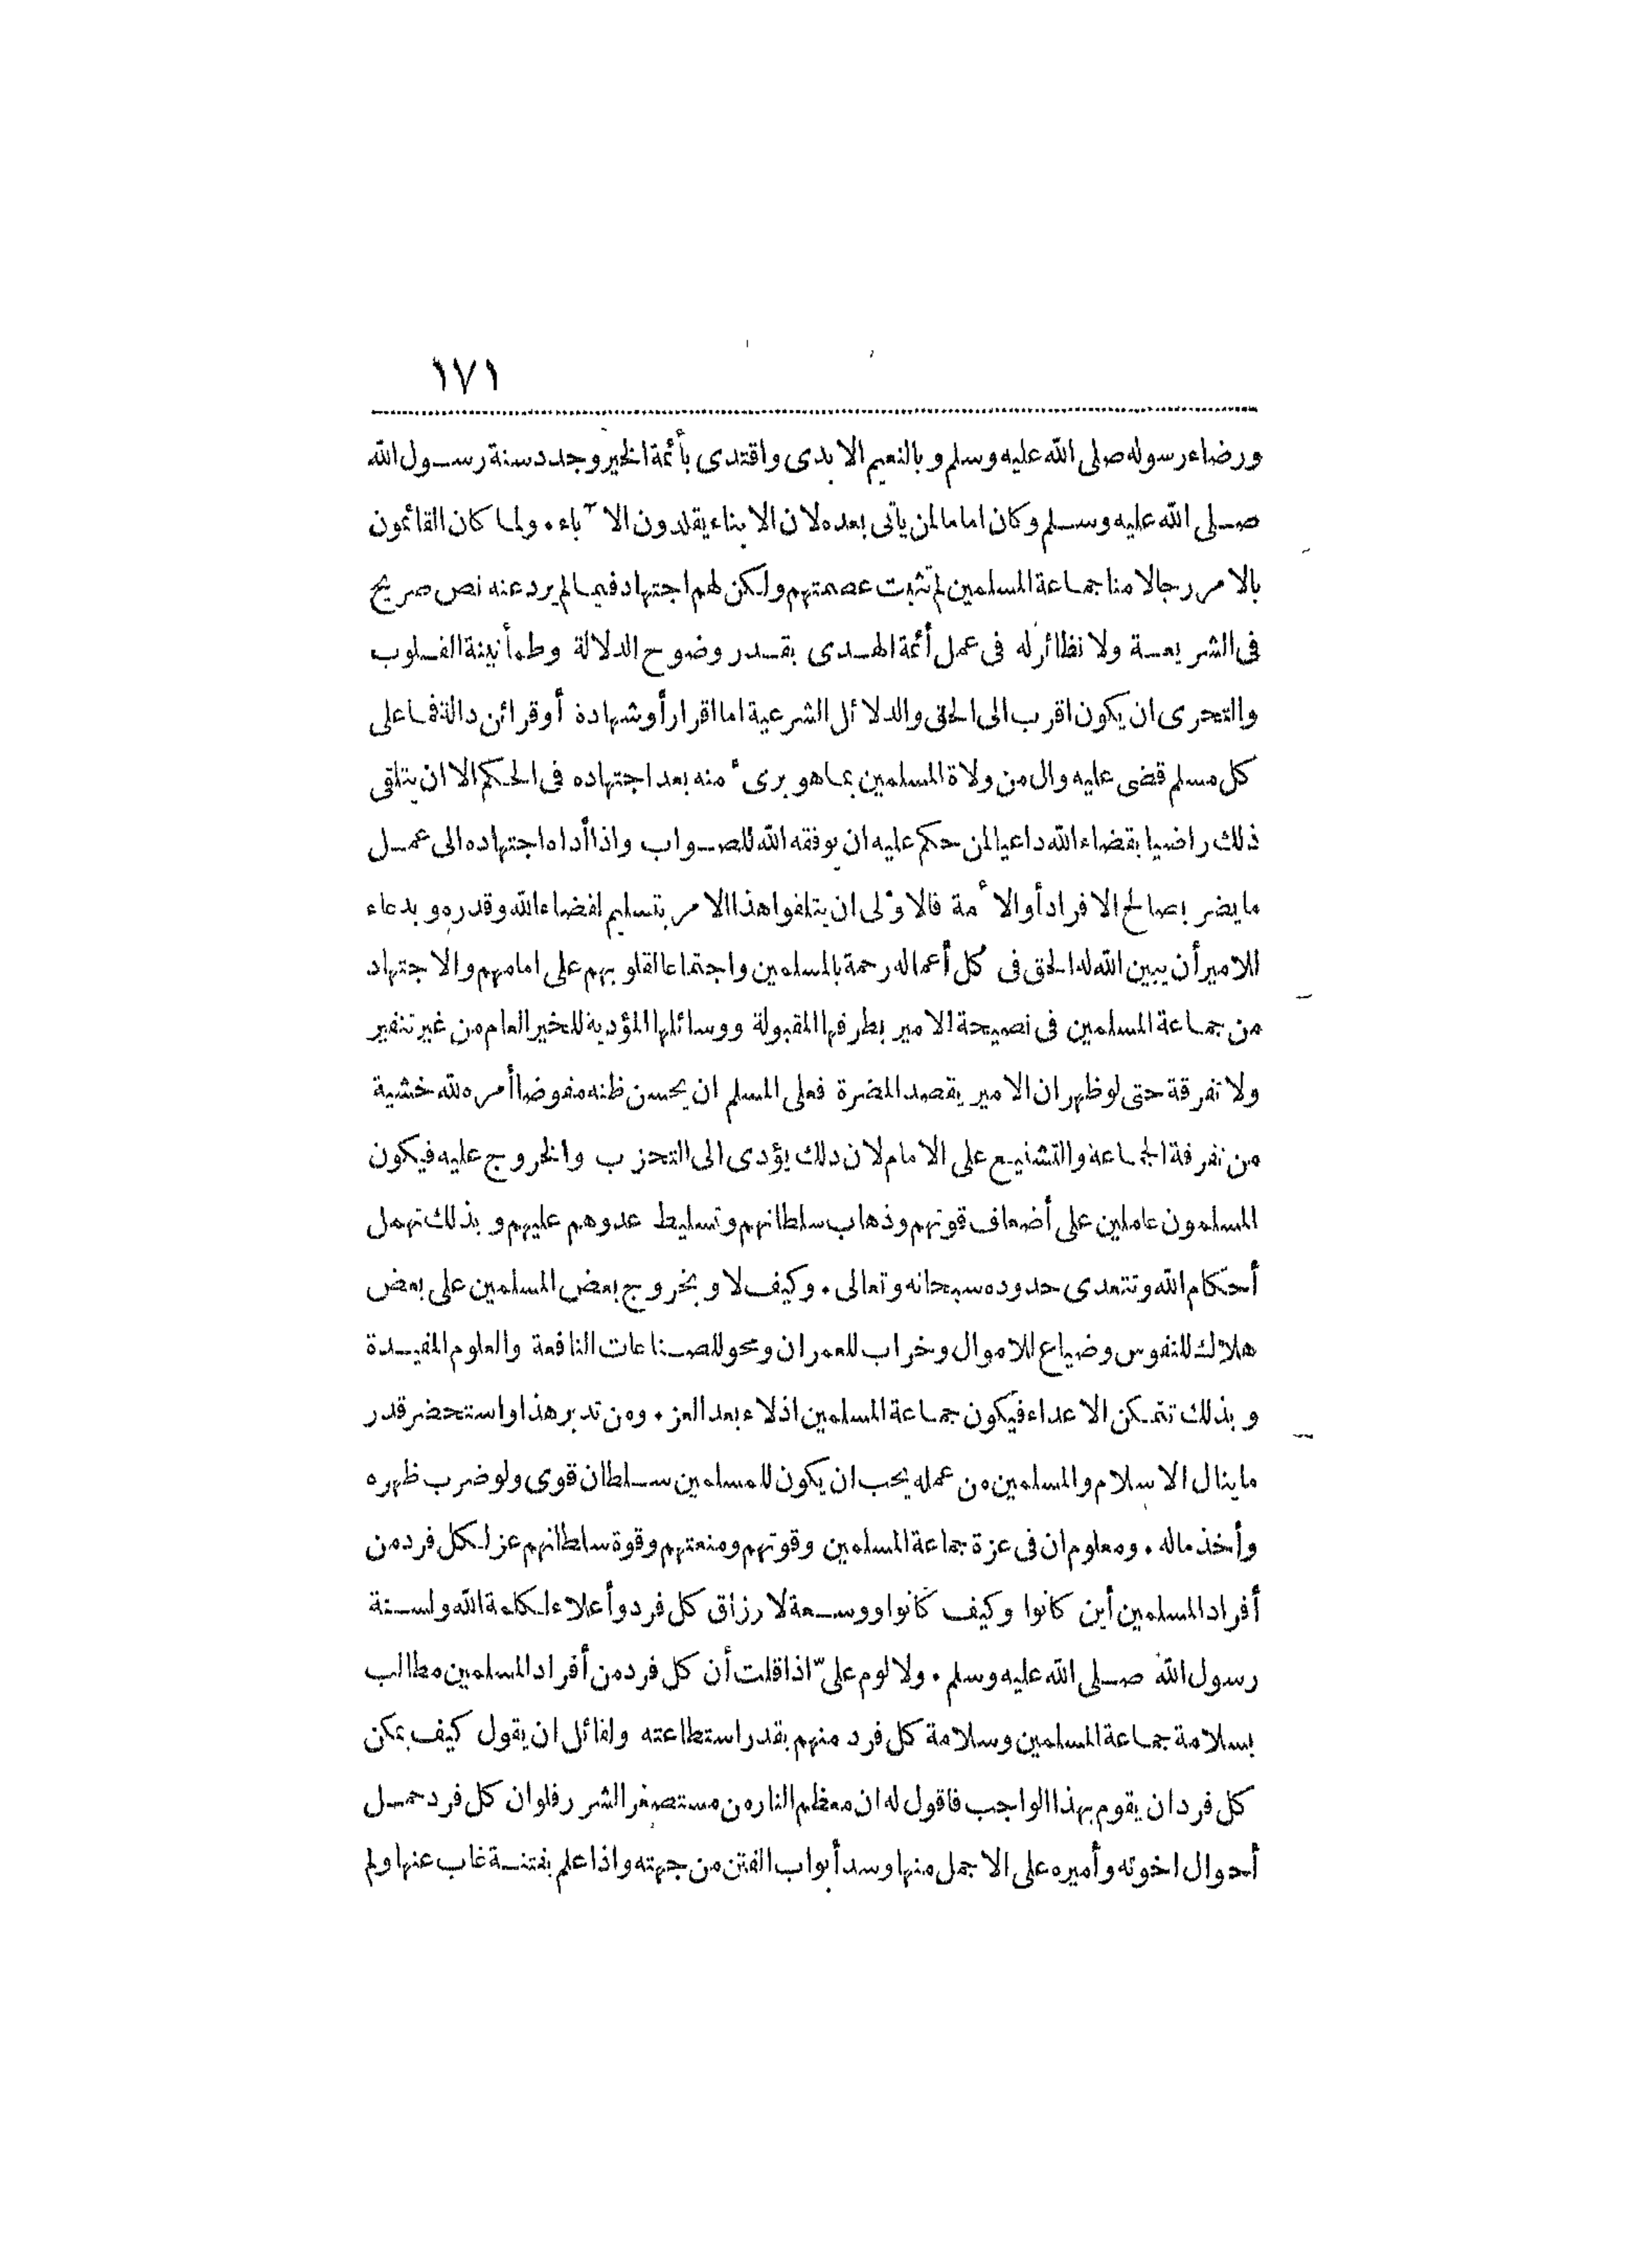 ١٧١
ورضاء رسوله صلى الله عليه وسلم وبالنعيم الابدى واقتدى بأئمة الخير وجدد سنة رسول الله
صلى الله عليه وسلم وكان اماما لمن يأتى بعده لان الابناء يقلدون الآباء . ولما كان القائمون
بالامر رجالا منا جماعة المسلمين لم تثبت عصمتهم ولكن لهم اجتهاد فيما لم يرد عنه نص صريح
فى الشريعة ولا نظائر له فى عمل أئمة الهدى بقدر وضوح الدلالة وطمأنينة القلوب
والتحرى ان يكون اقرب الى الحق والدلائل الشرعية اما اقرار أو شهادة أو قرائن دالة فما على
كل مسلم قضى عليه وال من ولاة المسلمين بما هو برىء منه بعد اجتهاده فى الحكم الا ان يتلقى
ذلك راضيا بقضاء الله داعيا لمن حكم عليه ان يوفقه الله للصواب واذا أداه اجتهاده الى عمل
ما يضر بصالح الافراد أو الأمة فالاولى ان يتلقوا هذا الامر بتسليم لقضاء الله وقدره وبدعاء
للامير أن يبين الله له الحق فى كل أعماله رحمة بالمسلمين واجتماعا لقلوبهم على امامهم والاجتهاد
من جماعة المسلمين فى نصيحة الامير بطرقها المقبولة ووسائلها المؤدية للخير العام من غير تنفير
ولا تفرقة حتى لو ظهر ان الامير يقصد المضرة فعلى المسلم ان يحسن ظنه مفوضا أمره لله خشية
من تفرقة الجماعة والتشنيع على الامام لان ذلك يؤدى الى التحزب والخروج عليه فيكون
المسلمون عاملين على أضعاف قوتهم وذهاب سلطانهم وتسليط عدوهم عليهم وبذلك تهمل
أحكام الله وتتعدى حدوده سبحانه وتعالى . وكيف لا وبخروج بعض المسلمين على بعض
هلاك للنفوس وضياع للاموال وخراب للعمران ومحو للصناعات النافعة والعلوم المفيدة
وبذلك تتمكن الاعداء فيكون جماعة المسلمين اذلاء بعد العز . ومن تدبر هذا واستحضر قدر
ما ينال الاسلام والمسلمين من عمله يحب ان يكون للمسلمين سلطان قوى ولو ضرب ظهره
وأخذ ماله . ومعلوم ان فى عزة جماعة المسلمين وقوتهم ومنعتهم وقوة سلطانهم عز لكل فرد من
أفراد المسلمين أين كانوا وكيف كانوا ووسعة لارزاق كل فرد وأعلاء لكلمة الله ولسنة
رسول الله صلى الله عليه وسلم . ولا لوم علىّ اذا قلت أن كل فرد من أفراد المسلمين مطالب
بسلامة جماعة المسلمين وسلامة كل فرد منهم بقدر استطاعته ولقائل ان يقول كيف يمكن
كل فرد ان يقوم بهذا الواجب فاقول له ان معظم النار من مستصغر الشرر فلو ان كل فرد حمل
أحوال اخوته وأميره على الاجمل منها وسد أبواب الفتن من جهته واذا علم بفتنة غاب عنها ولم